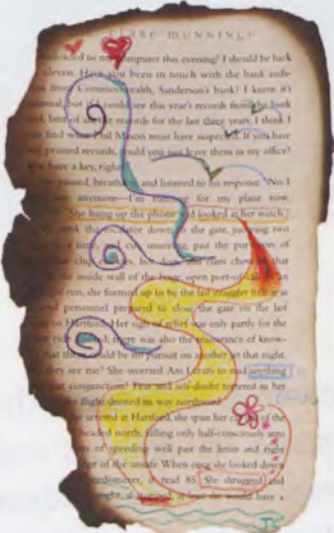 CLARE MUNNINGS
to my computer this evening? I should be back
eleven. Have you been in touch with the bank
from Commonwealth, Sanderson's bank? I know it's
but if I could see this year's records from the bank
and, best of all, the records for the last three years, I think I
find what Phil Mason must have suspected. If you have
printed records, could you just leave them in my office?
have a key, right?
paused, breathed, and listened to his response. "No I
anymore—I'm for my place now.
She hung up the phone and looked at her watch
took the escalator down to the gate, jumping two
time, unseeing, past the purveyors of
clam chow
inside wall of the huge, open port-of-call
run, she formed up to be the last straggler in line as
personnel prepared to close the gate on the last
to Hartford. Her sigh of relief was only partly for the
ride; there was also the assurance of know-
that there could be no pursuit on another jet that night.
they see me? She worried. Am I crazy to read anything
that conjunction? Fear and self-doubt in her
the flight droned its way northward.
she arrived at Hartford, she spun her car out of the
headed north, falling only half-consciously into
of speeding well past the limits and right
edge of the unsafe. When once she looked down
speedometer, it read 85. She shrugged and
thought, if at least she would have a